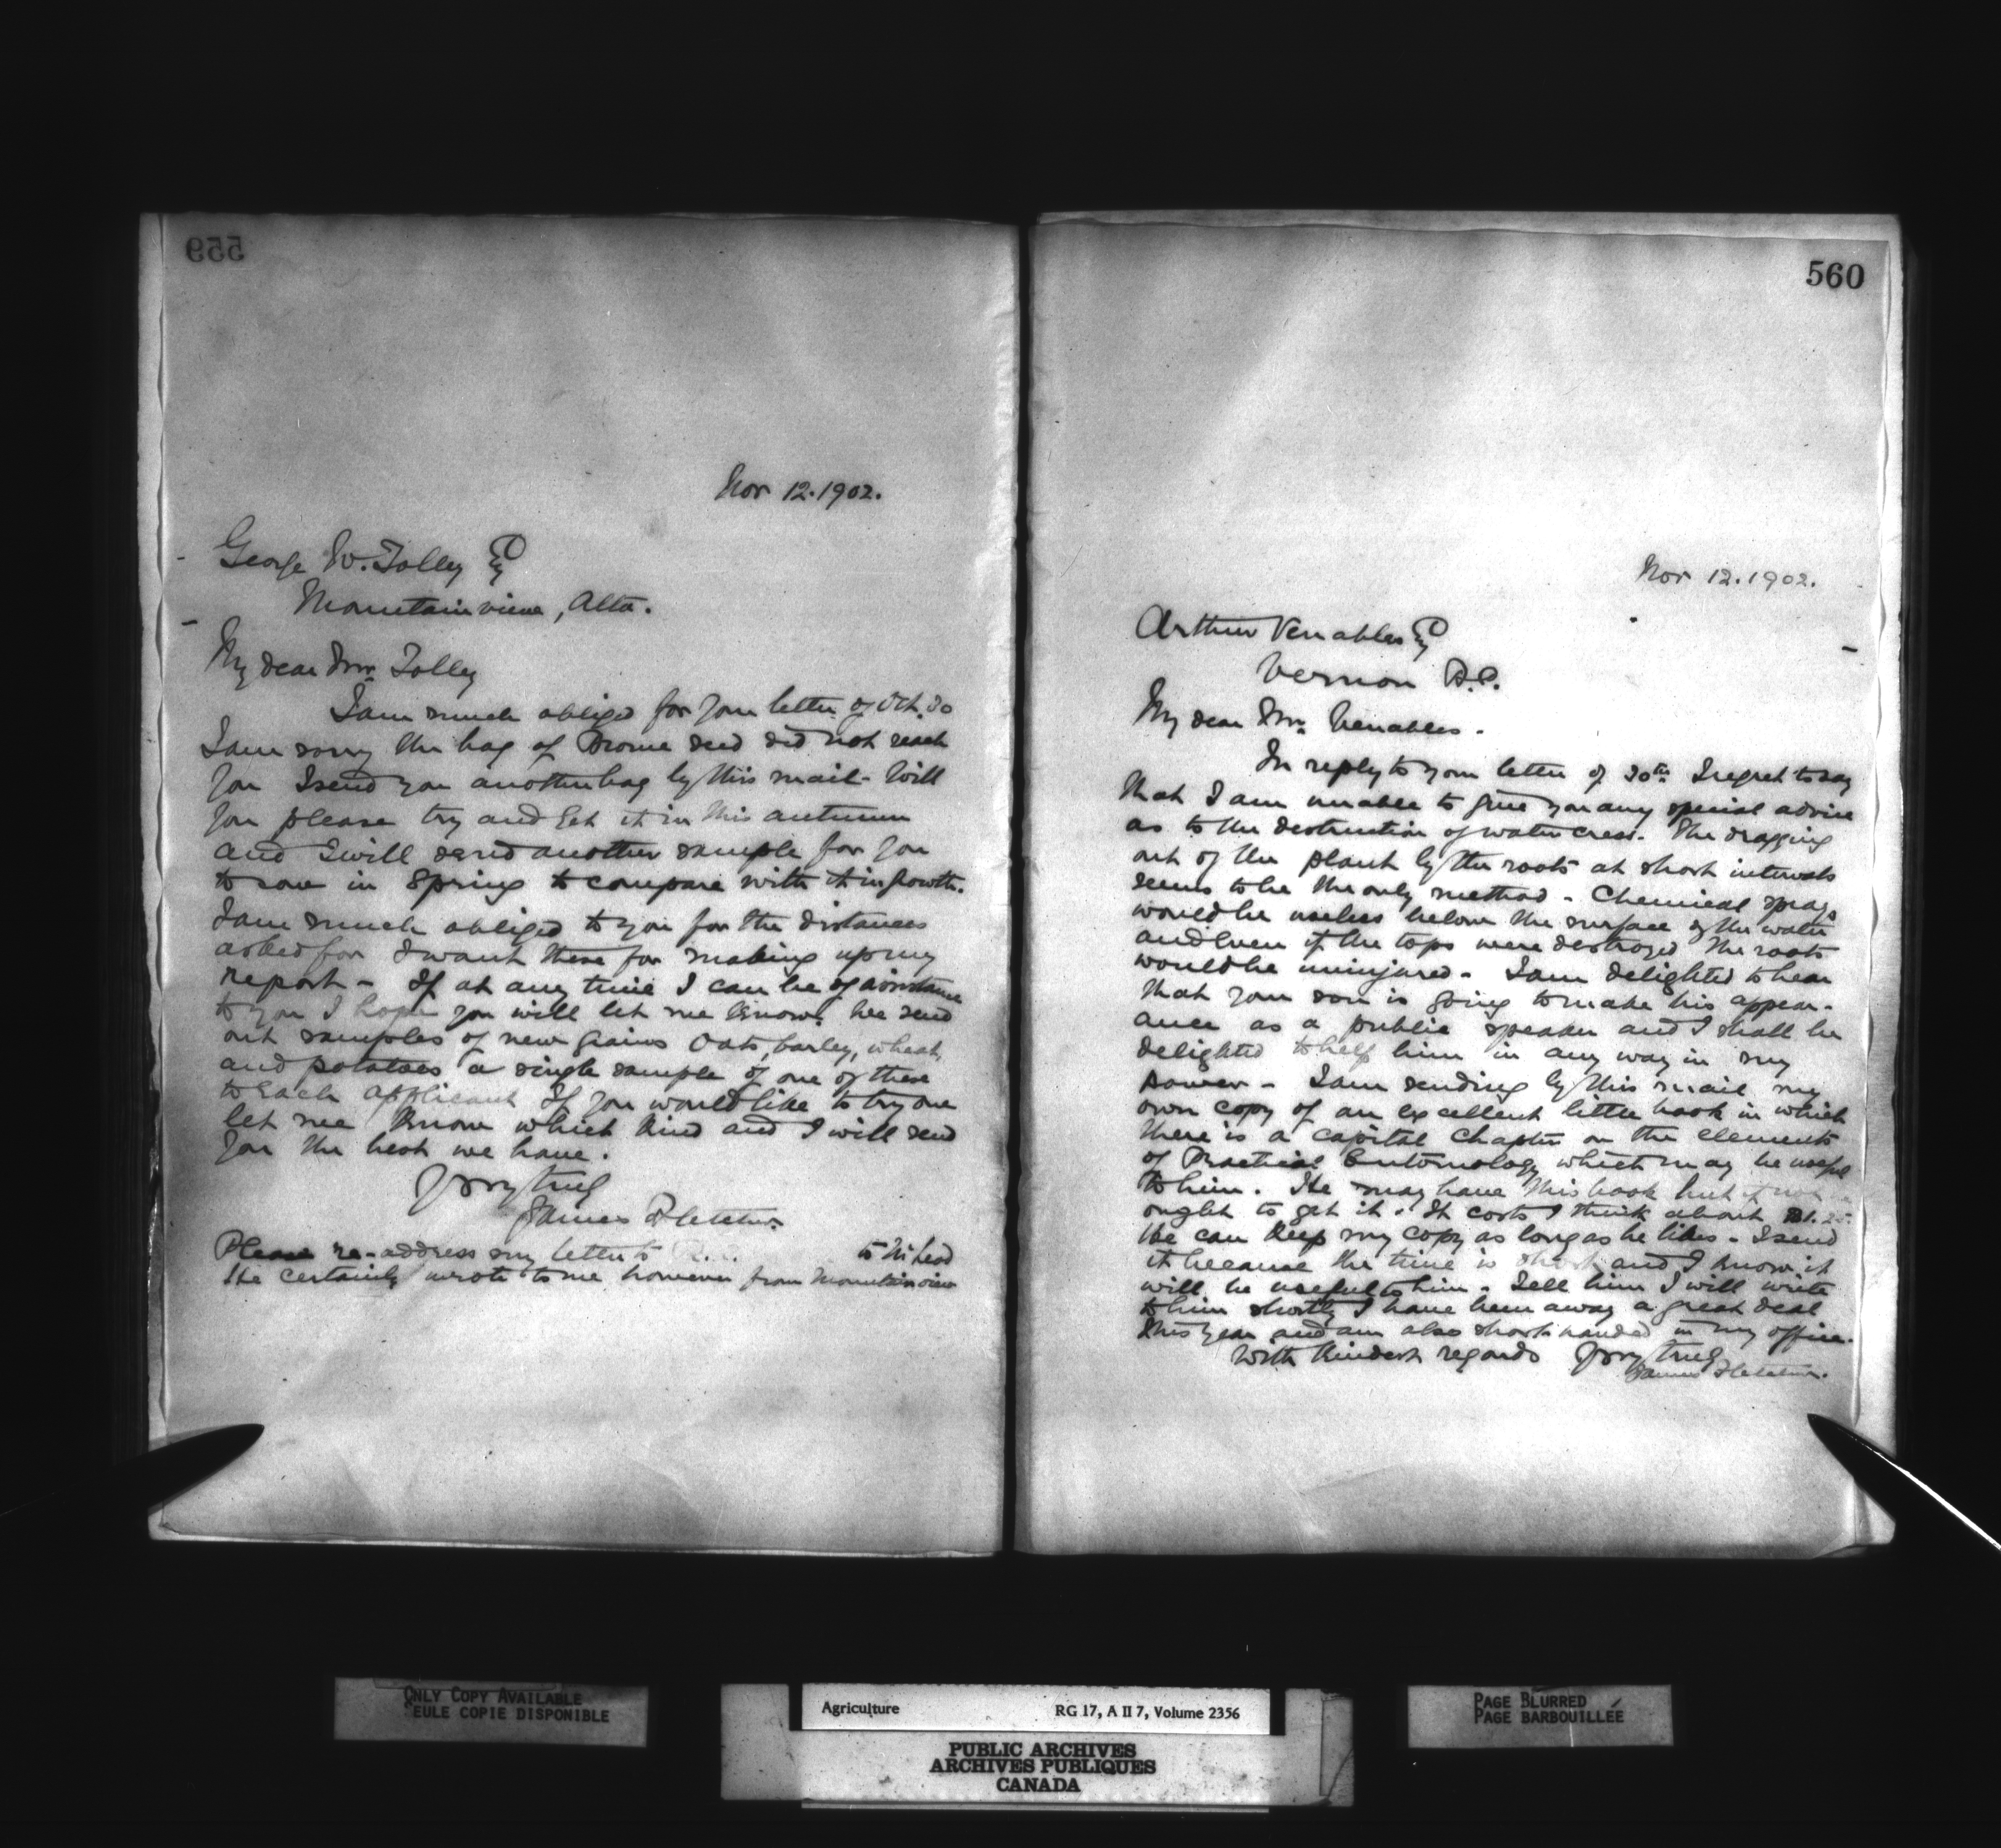 559
Nov 12. 1902.
George W. Tolley Esq
Mountain view, Alta.
My dear Mr. Tolley
I am much obliged for your letter of Oct. 30
I am sorry the bag of Brome seed did not reach
you I send you another bag by this mail - Will
you please try and get it in this autumn
and I will send another sample for you
to sow in Spring to compare with it in growth.
I am much obliged to you for the distances
asked for I want these for making up my
report - If at any time I can be of assistance
to you I hope you will let me know. We send
out samples of new grains Oats, barley, wheat,
and potatoes a single sample of one of these
to each applicant If you would like to try one
let me know which kind and I will send
you the best we have.
Yrs very truly
James Fletcher.
Please re-address my letter to
He certainly wrote to me however from Mountain view
560
Nov 12. 1902.
Arthur Venables Esq
Vernon B.C.
My dear Mr. Venables.
In reply to your letter of 30th I regret to say
that I am unable to give you any special advice
as to the destruction of water cress. The dragging
out of the plant by the roots at short intervals
seems to be the only method - Chemical sprays
would be useless below the surface of the water
and even if the tops were destroyed the roots
would be uninjured. I am delighted to hear
that your son is going to make his appear-
ance as a public speaker and I shall be
delighted to help him in any way in my
power - I am sending by this mail my
own copy of an excellent little book in which
there is a capital chapter on the elements
of Practical Entomology which may be useful
to him. He may have this book but if not
ought to get it. It costs I think about $1.25.
He can keep my copy as long as he likes - I send
it because the time is short and I know it
will be useful to him. Tell him I will write
to him shortly I have been away a great deal
this year and am also short handed in my office.
With kindest regards Yrs very truly
James Fletcher.
ONLY COPY AVAILABLE
SEULE COPIE DISPONIBLE
Agriculture RG 17, A II 7, Volume 2356
PUBLIC ARCHIVES
ARCHIVES PUBLIQUES
CANADA
PAGE BLURRED
PAGE BARBOUILLÉE